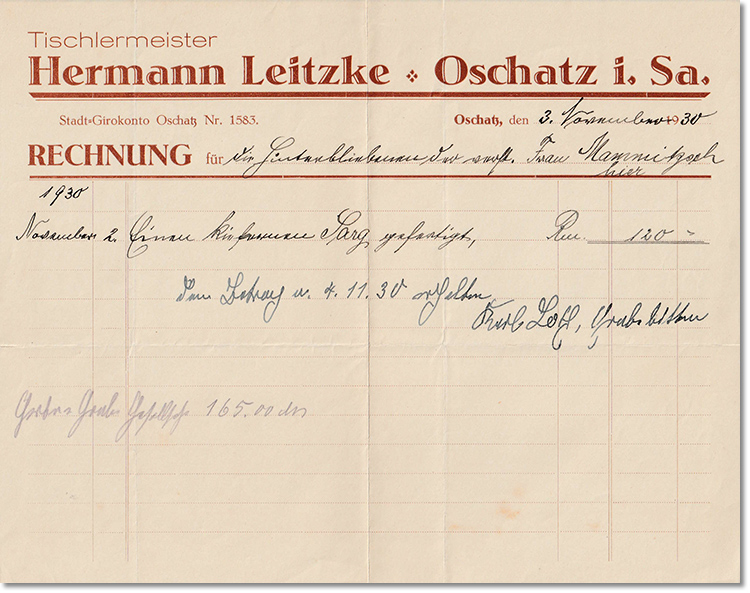 Tischlermeister
Hermann Leitzke Oschatz i. Sa.
Stadt=Girokonto Oschatz Nr. 1583.
Oschatz, den 3. November 1930
RECHNUNG für die Hinterbliebenen der verst. Frau Mammitzsch
hier
1930
November 2. Einen kiefernen Sarg gefertigt, Rm. 120 -
den Betrag a. 4.11.30 erhalten
Karl
165.00